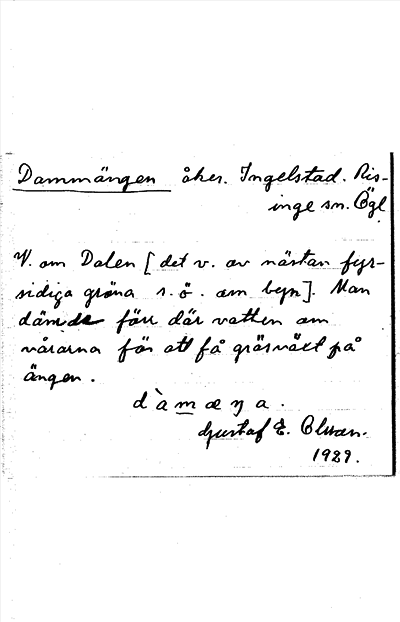 Dammängen åker. Ingelstad. Ris-
inge sn. Ögl
V. om Dalen [det v. av nästan fyr-
sidiga gröna s. ö. om byn]. Man
dämde förr där vatten om
vårarna för att få gräsväxt på
ängen.
d`amæŋa.
Gustaf E. Olsson.
1929.